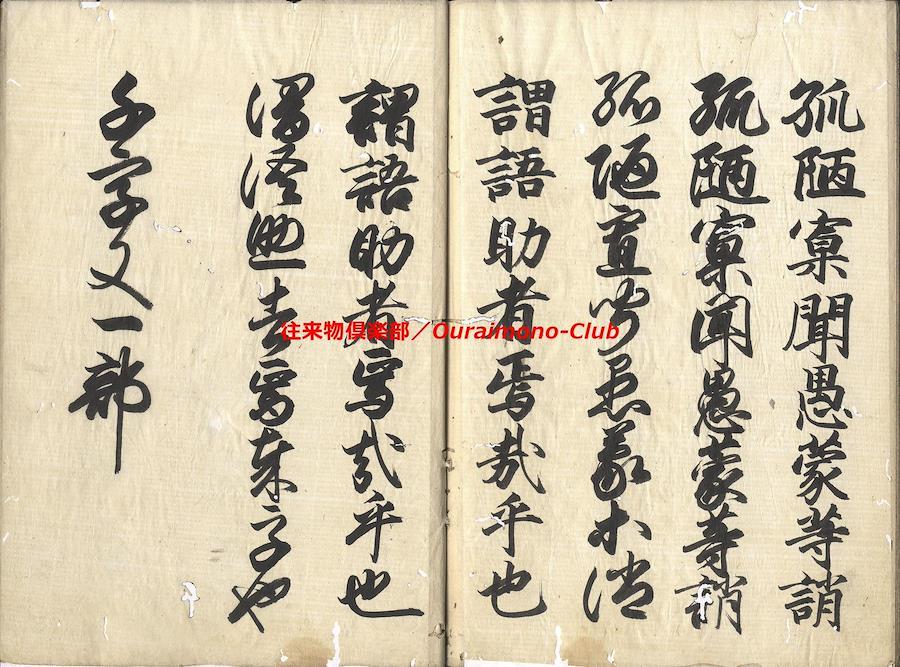 孤陋寡聞愚蒙等誚
孤陋寡聞愚蒙等誚
孤陋寡聞愚蒙等誚
謂語助者焉哉乎也
謂語助者焉哉乎也
謂語助者焉哉乎也
千字文一部
往来物倶楽部／Ouraimono-Club